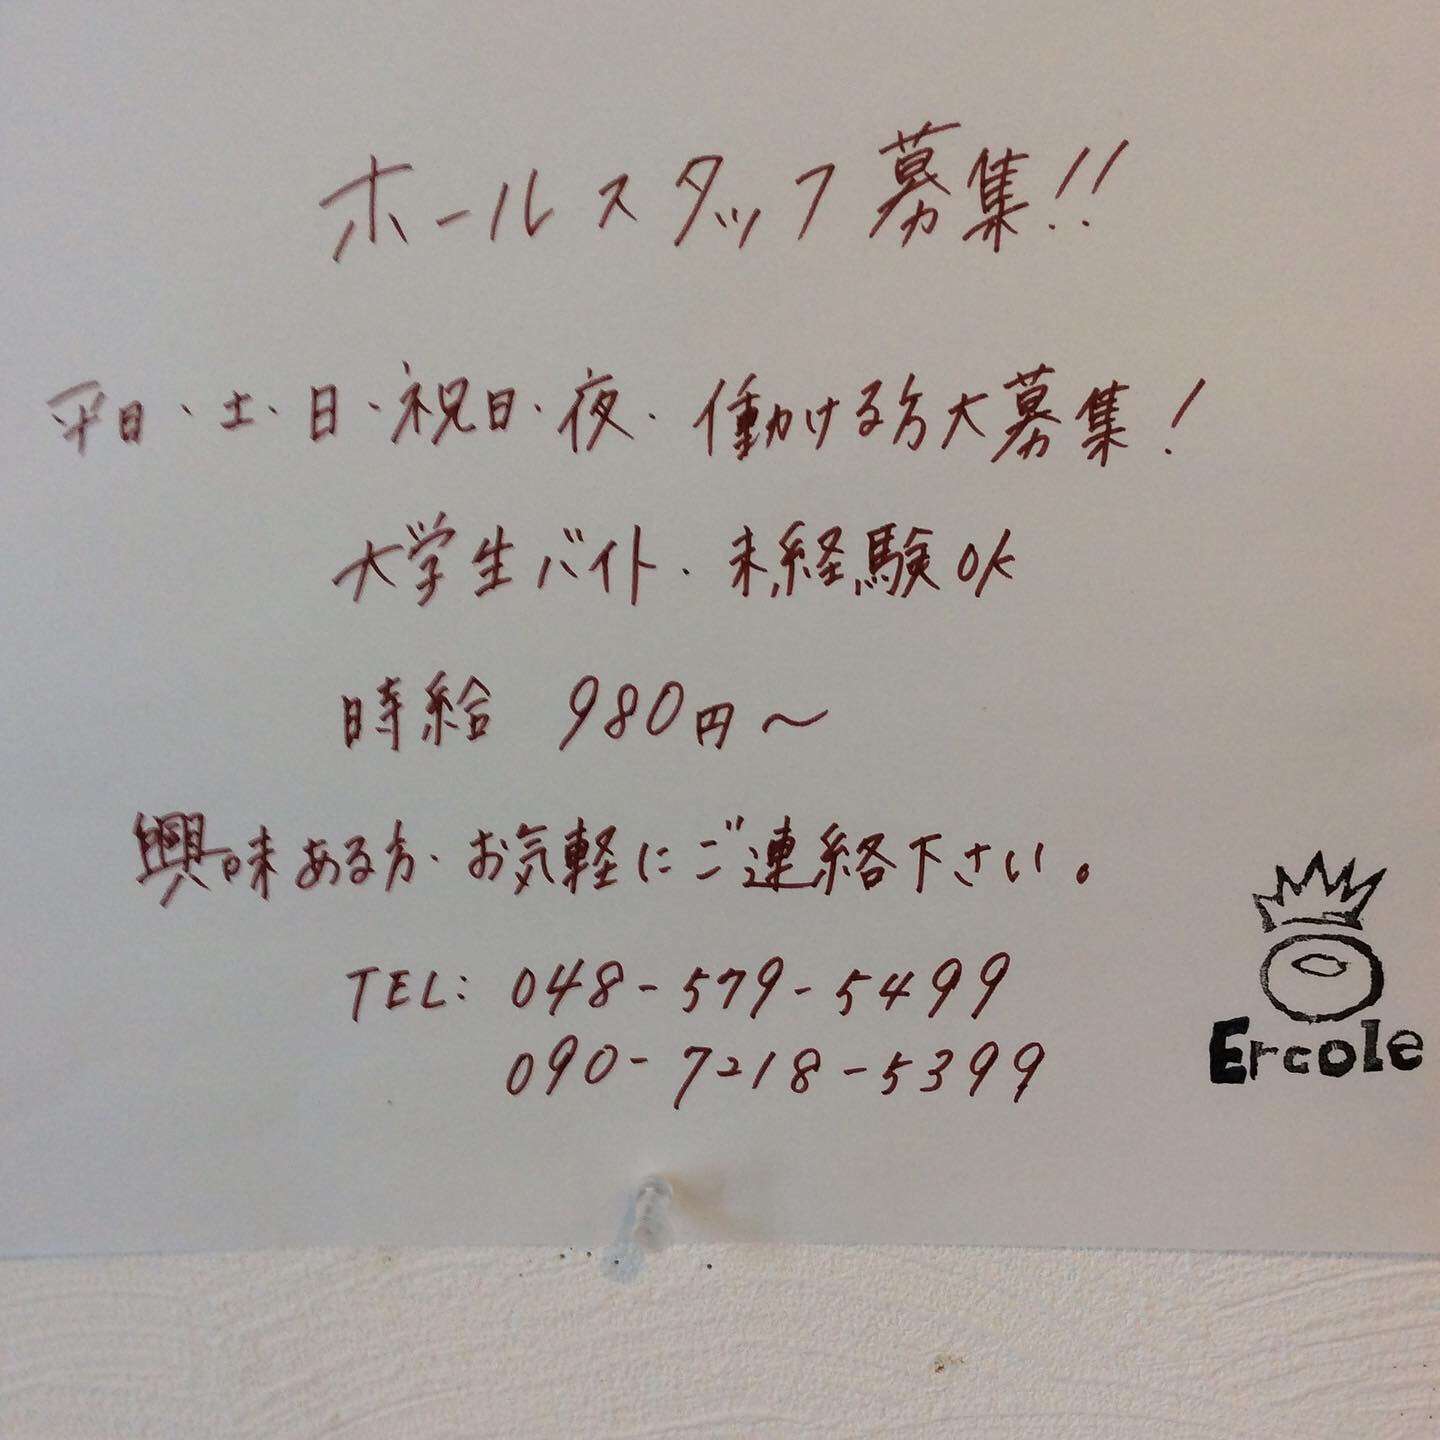 ホールスタッフ募集!!
平日、土・日・祝日・夜・働ける方大募集!
大学生バイト・未経験OK
時給 980円〜
興味ある方・お気軽にご連絡下さい。
TEL: 048-579-5499
090-7218-5399
Ercole